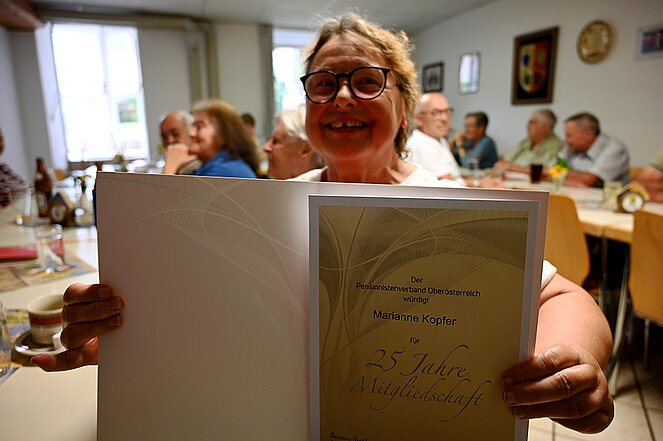 Der
Pensionistenverband Oberösterreich
würdigt
Marianne Kopfer
für
25 Jahre
Mitgliedschaft